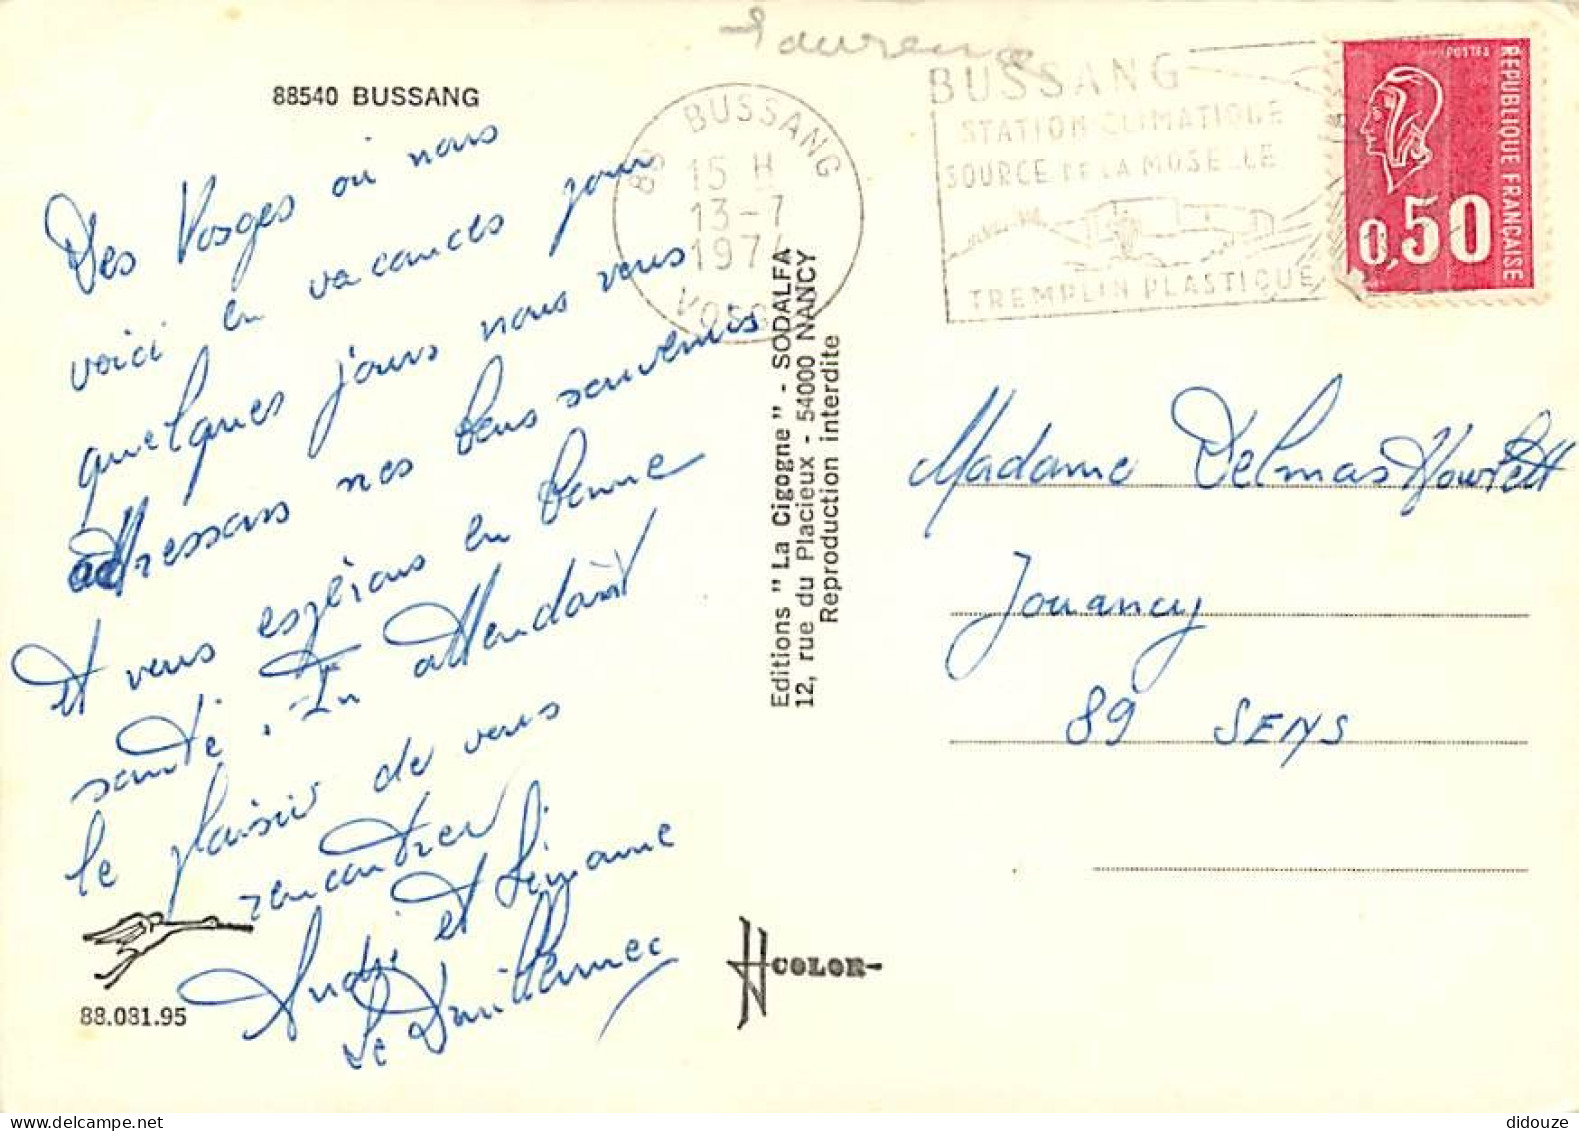 88540 BUSSANG
Des Vosges où nous
voici en vacances pour
quelques jours nous vous
adressons nos bons souvenirs
et vous espérons en bonne
santé. En attendant
le plaisir de vous
rencontrer
André et Simonne
88.081.95
Editions "La Cigogne" - SODALFA
12, rue du Placieux - 54000 NANCY
Reproduction interdite
COLOR
88 BUSSANG
15 H
13-7
1974
VOSGES
BUSSANG
STATION CLIMATIQUE
SOURCE DE LA MOSELLE
TREMPLIN PLASTIQUE
POSTES
REPUBLIQUE FRANÇAISE
0,50
Madame Delmas
Jouancy
89 SENS
didouze